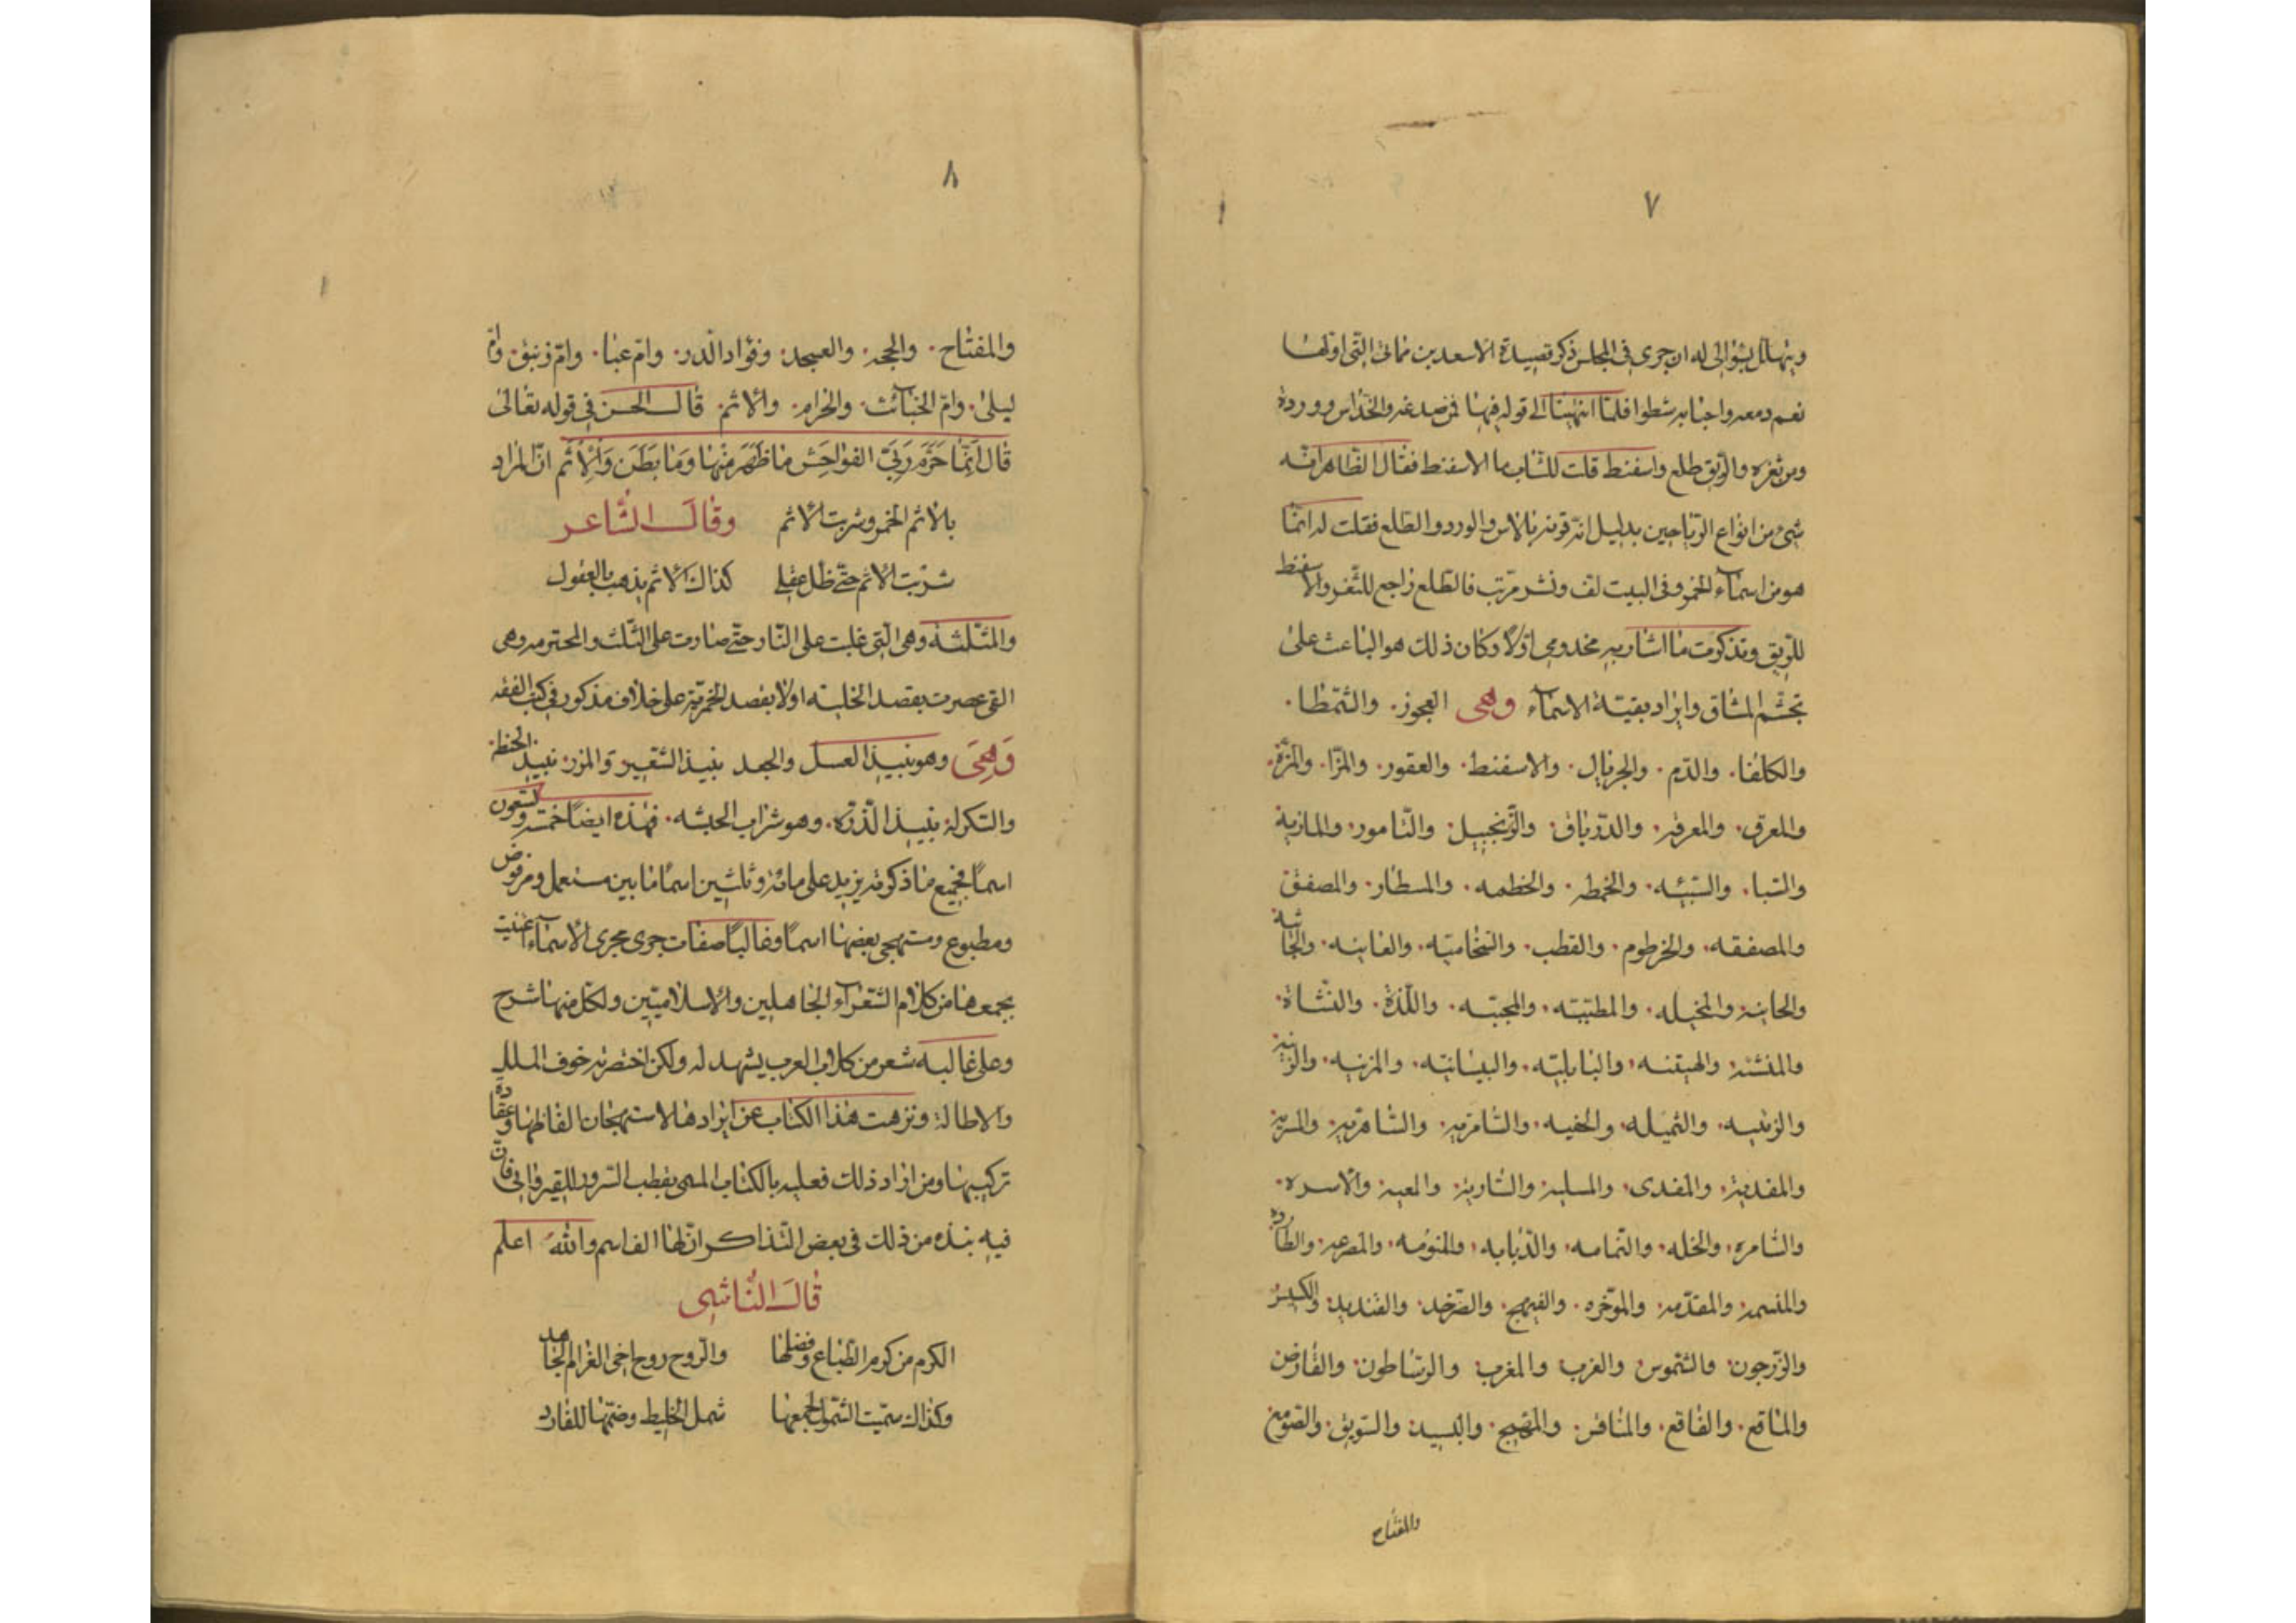 ٧
وينهلل بشوالى له ان جرى فى المجلس ذكر قصيدة الاسعد بن مماتى التى اولها
نعم دمعه واجنابه شطوا فلما انتهينا الى قوله فيها فمن صدغه والخد اس ووردة
ومن ثغره والريق طلع واسفنط قلت للشاب ما الاسفنط فقال الظاهر انه
شىء من انواع الرياحين بدليل انه قرنه بالاس والورد والطلع فقلت له انما
هو من اسماء الخمر وفى البيت لف ونشر مرتب فالطلع راجع للثغر والاسفنط
للريق وتذكرت ما اشار به مخدومى اولا وكان ذلك هو الباعث على
تجشم المشاق وايراد بقية الاسماء وهى العجوز والشمطا
والكلفا والدم والجريال والاسفنط والعقور والمزا والمزة
والمعرق والمعرقه والدرياق والزنجبيل والتامور والماذية
والسبا والسبيئه والخمطه والخطمه والمسطار والمصفق
والمصفقه والخرطوم والقطب والسخاميه والغانيه والجاشة
والحانية والمخيله والمطيبه والمجبه واللذة والنشاة
والمنشنه والهيتنه والبابلية والبيسانيه والمزنيه والزيتية
والزبيبه والثميله والخفيه والشامزيه والشاهزيه والمريه
والمقديه والمقدى والمسلية والشاربة والمعبه والاسره
والشامره والخله والتمامه والذبابه والمنومه والمصرعه والطارده
والمنسمه والمقدمه والموخره والفيهج والصرخد والقنديد والكبيز
والزرجون والشموس والغرب والمغرب والرساطون والفارض
والماقع والفاقع والمنافر والمهيج والكسيه والسويق والصومع
والمفتاح
٨
والمفتاح والججه والعسجد وفؤاد الدن وام عبا وام زنبق وام
ليلى وام الخبائث والحرام والاثم قال الحسن فى قوله تعالى
قال انما حرم ربى الفواحش ما ظهر منها وما بطن والاثم ان المراد
بالاثم الخمر وشربت الاثم وقال الشاعر
شربت الاثم حتى ظل عقلى كذاك الاثم يذهب بالعقول
والمثلثه وهى التى غلبت على النار حتى صارت على الثلث والمحترمه وهى
التى عصرت بقصد الخلية او لا بقصد الخمرية على خلاف مذكور فى كتب الفقه
وهى وهو نبيذ العسل والجعه نبيذ الشعير والمزر نبيذ الحنطه
والسكركة نبيذ الذرة وهو شراب الحبشه فهذه ايضا خمسة وتسعون
اسما فجميع ما ذكرته يزيد على مائة وثلثين اسما ما بين مستعمل ومرفوض
ومطبوع ومستهجى بعضها اسما وغالبا صفات جرى مجرى الاسماء اعنيت
بجمعها من كلام الشعراء الجاهلين والاسلاميين ولكل منها شرح
وعلى غالبه شعر من كلام العرب يشهد له ولكن اختصرته خوف الملل
والاطالة ونزهت هذا الكتاب عن ايرادها لاستهجان الفاظها وعقادة
تركيبها ومن اراد ذلك فعليه بالكتاب المسمى بقطب السرور للقيروانى فان
فيه نبذه من ذلك فى بعض التذاكر ان لها الف اسم والله اعلم
قال الناشى
الكرم من كرم الطباع وفضلها والروح روح اخى الغرام الجاهد
وكذاك سميت الشمول لجمعها شمل الخليط وضمها للفارد